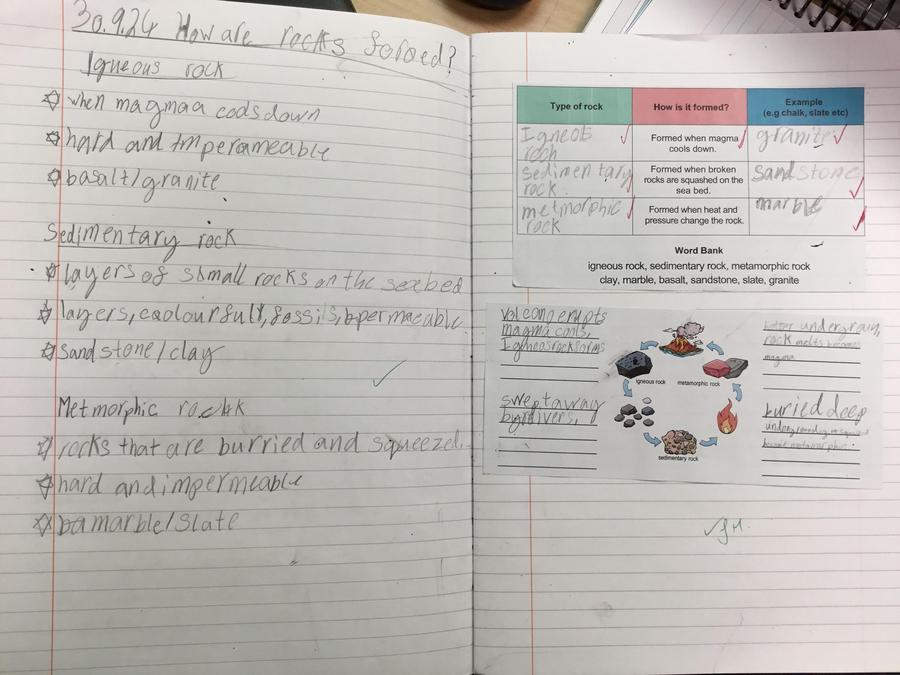 30.9.24 How are rocks foroed?
Igneous rock
when magmaa codsdown
hard and Imperameable
basalt/granite
Sedimentary rock
layers of small rocks on the seabed
layers, coolourfull, fossils, permaeable.
Sandstone/clay
Metmorphic rock
rocks that are burried and squeezed.
hard and impermeable
marble/slate
Type of rock
How is it formed?
Example
(e.g chalk, slate etc)
Igneos
roch
Formed when magma
cools down.
granite
sedimentary
rock
Formed when broken
rocks are squashed on the
sea bed.
Sandstone
metmorphic
rock
Formed when heat and
pressure change the rock.
marble
Word Bank
igneous rock, sedimentary rock, metamorphic rock
clay, marble, basalt, sandstone, slate, granite
Volcano erupts
magma cools,
Igneosrockforms
undergroun,
rock melts becomes
magma
igneous rock
metamorphic rock
sweptaway
byrivers,
buried deep
sedimentary rock